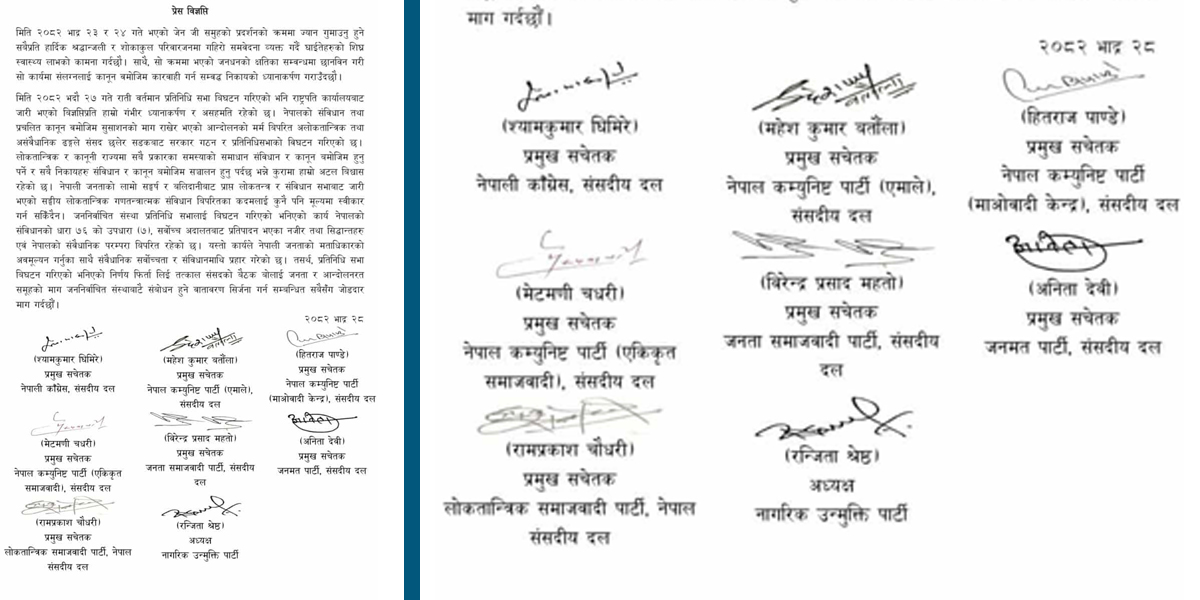 प्रेस विज्ञप्ति
मिति २०८२ भाद्र २३ र २४ गते भएको जेन जी समुहको प्रदर्शनको क्रममा ज्यान गुमाउनु हुने
सवैप्रति हार्दिक श्रद्धान्जली र शोकाकुल परिवारजनमा गहिरो समवेदना व्यक्त गर्दै घाईतेहरुको शिघ्र
स्वास्थ्य लाभको कामना गर्दछौं। साथै, सो क्रममा भएको जनधनको क्षतिका सम्बन्धमा छानविन गरी
सो कार्यमा संलग्नलाई कानून वमोजिम कारवाही गर्न सम्वद्ध निकायको ध्यानाकर्षण गराउँदछौं।
मिति २०८२ भदौ २७ गते राती वर्तमान प्रतिनिधि सभा विघटन गरिएको भनि राष्ट्रपति कार्यालयबाट
जारी भएको विज्ञप्तिप्रति हाम्रो गंभीर ध्यानाकर्षण र असहमति रहेको छ। नेपालको संविधान तथा
प्रचलित कानून वमोजिम सुसाशनको माग राखेर भएको आन्दोलनको मर्म विपरित अलोकतान्त्रिक तथा
असंवैधानिक ढङ्गले संसद छलेर सडकबाट सरकार गठन र प्रतिनिधिसभाको विघटन गरिएको छ।
लोकतान्त्रिक र कानूनी राज्यमा सवै प्रकारका समस्याको समाधान संविधान र कानून वमोजिम हुनु
पर्ने र सवै निकायहरु संविधान र कानून वमोजिम सञ्चालन हुनु पर्दछ भन्ने कुरामा हाम्रो अटल विश्वास
रहेको छ। नेपाली जनताको लामो सङ्घर्ष र वलिदानीबाट प्राप्त लोकतन्त्र र संविधान सभाबाट जारी
भएको सङ्घीय लोकतान्त्रिक गणतन्त्रात्मक संविधान विपरितका कदमलाई कुनै पनि मूल्यमा स्वीकार
गर्न सकिँदैन। जननिर्वाचित संस्था प्रतिनिधि सभालाई विघटन गरिएको भनिएको कार्य नेपालको
संविधानको धारा ७६ को उपधारा (७), सर्वोच्च अदालतबाट प्रतिपादन भएका नजीर तथा सिद्धान्तहरु
एवं नेपालको संवैधानिक परम्परा विपरित रहेको छ। यस्तो कार्यले नेपाली जनताको मताधिकारको
अवमूल्यन गर्नुका साथै संवैधानिक सर्वोच्चता र संविधानमाथि प्रहार गरेको छ। तसर्थ, प्रतिनिधि सभा
विघटन गरिएको भनिएको निर्णय फिर्ता लिई तत्काल संसदको बैठक बोलाई जनता र आन्दोलनरत
समूहको माग जननिर्वाचित संस्थाबाटै संवोधन हुने वातावरण सिर्जना गर्न सम्बन्धित सवैसँग जोडदार
माग गर्दछौं।
२०८२ भाद्र २८
(श्यामकुमार घिमिरे)
प्रमुख सचेतक
नेपाली काँग्रेस, संसदीय दल
(महेश कुमार वर्तौला)
प्रमुख सचेतक
नेपाल कम्युनिष्ट पार्टी (एमाले),
संसदीय दल
(हितराज पाण्डे)
प्रमुख सचेतक
नेपाल कम्युनिष्ट पार्टी
(माओवादी केन्द्र), संसदीय दल
(मेटमणी चधरी)
प्रमुख सचेतक
नेपाल कम्युनिष्ट पार्टी (एकिकृत
समाजवादी), संसदीय दल
(विरेन्द्र प्रसाद महतो)
प्रमुख सचेतक
जनता समाजवादी पार्टी, संसदीय
दल
(अनिता देवी)
प्रमुख सचेतक
जनमत पार्टी, संसदीय दल
(रामप्रकाश चौधरी)
प्रमुख सचेतक
लोकतान्त्रिक समाजवादी पार्टी, नेपाल
संसदीय दल
(रन्जिता श्रेष्ठ)
अध्यक्ष
नागरिक उन्मुक्ति पार्टी
माग गर्दछौं।
२०८२ भाद्र २८
(श्यामकुमार घिमिरे)
प्रमुख सचेतक
नेपाली काँग्रेस, संसदीय दल
(महेश कुमार वर्तौला)
प्रमुख सचेतक
नेपाल कम्युनिष्ट पार्टी (एमाले),
संसदीय दल
(हितराज पाण्डे)
प्रमुख सचेतक
नेपाल कम्युनिष्ट पार्टी
(माओवादी केन्द्र), संसदीय दल
(मेटमणी चधरी)
प्रमुख सचेतक
नेपाल कम्युनिष्ट पार्टी (एकिकृत
समाजवादी), संसदीय दल
(विरेन्द्र प्रसाद महतो)
प्रमुख सचेतक
जनता समाजवादी पार्टी, संसदीय
दल
(अनिता देवी)
प्रमुख सचेतक
जनमत पार्टी, संसदीय दल
(रामप्रकाश चौधरी)
प्रमुख सचेतक
लोकतान्त्रिक समाजवादी पार्टी, नेपाल
संसदीय दल
(रन्जिता श्रेष्ठ)
अध्यक्ष
नागरिक उन्मुक्ति पार्टी